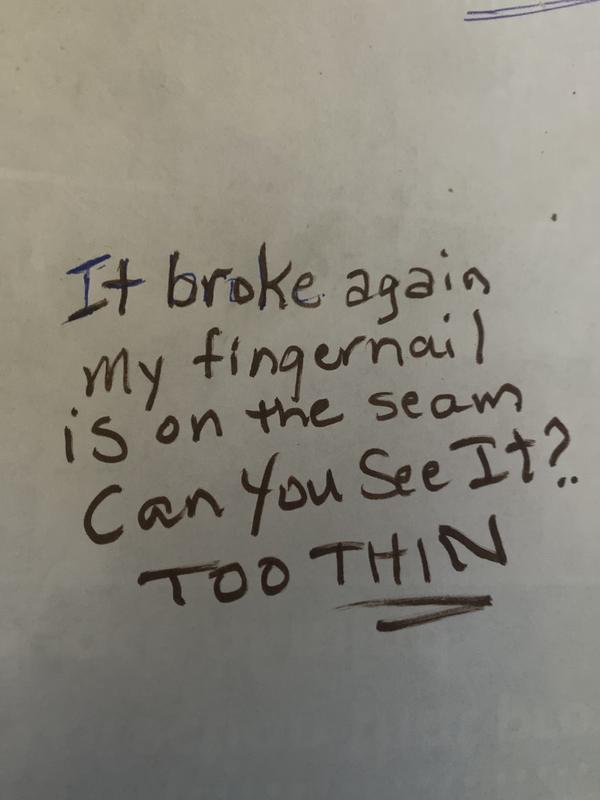 It broke again
my fingernail
is on the seam
Can You See It?
TOO THIN